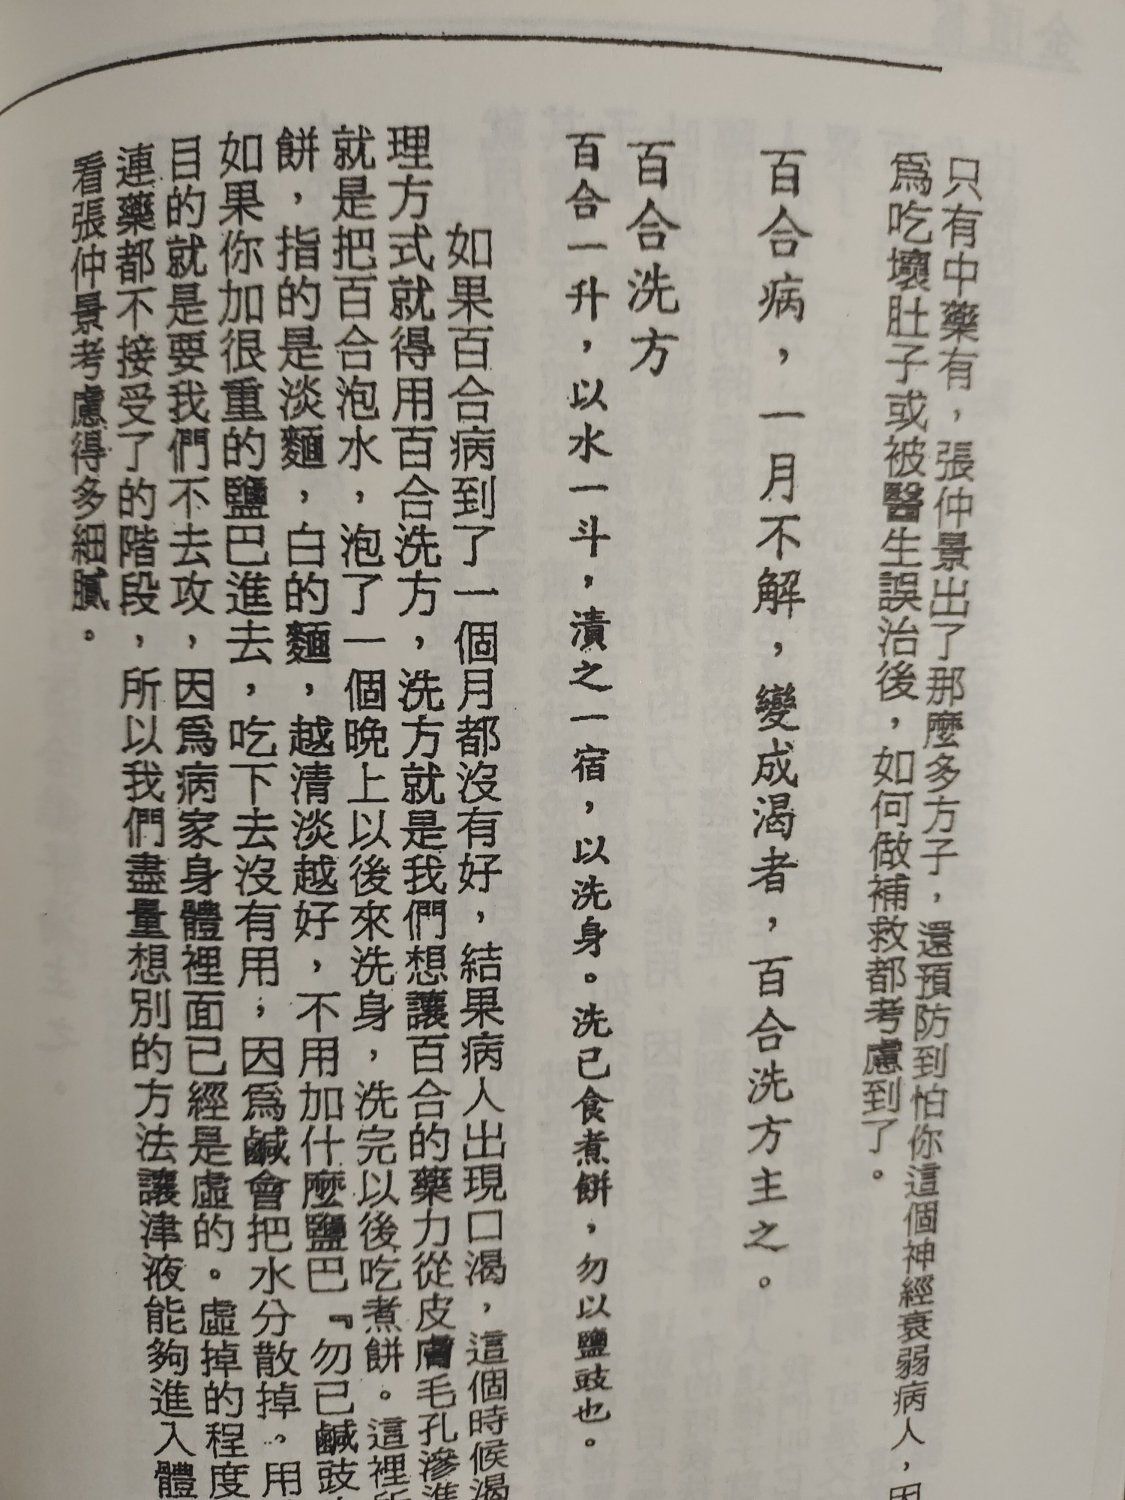 只有中藥有，張仲景出了那麼多方子，還預防到怕你這個神經衰弱病人，因
爲吃壞肚子或被醫生誤治後，如何做補救都考慮到了。
百合病，一月不解，變成渴者，百合洗方主之。
百合洗方
百合一升，以水一斗，漬之一宿，以洗身。洗已食煮餅，勿以鹽豉也。
如果百合病到了一個月都沒有好，結果病人出現口渴，這個時候渴
理方式就得用百合洗方，洗方就是我們想讓百合的藥力從皮膚毛孔滲進
就是把百合泡水，泡了一個晚上以後來洗身，洗完以後吃煮餅。這裡所
餅，指的是淡麵，白的麵，越清淡越好，不用加什麼鹽巴『勿已鹹豉
如果你加很重的鹽巴進去，吃下去沒有用，因爲鹹會把水分散掉。用
目的就是要我們不去攻，因爲病家身體裡面已經是虛的。虛掉的程度
連藥都不接受了的階段，所以我們盡量想別的方法讓津液能夠進入體
看張仲景考慮得多細膩。